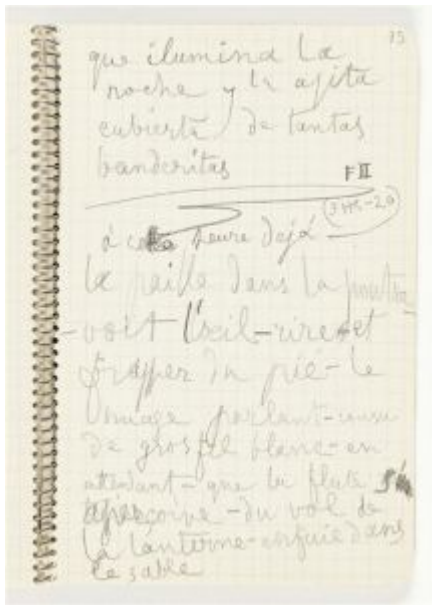 15
que ilumina la
noche y la agita
cubierta de tantas
banderitas
F II
à cette heure dejá
la paille dans la poutre
voit l'œil-rire et
frapper du pié-le
nuage parlant-cousu
de gros fil blanc-en
attendant-que la flute s'en
aperçoive-du vol de
la lanterne-enfuie dans
le sable